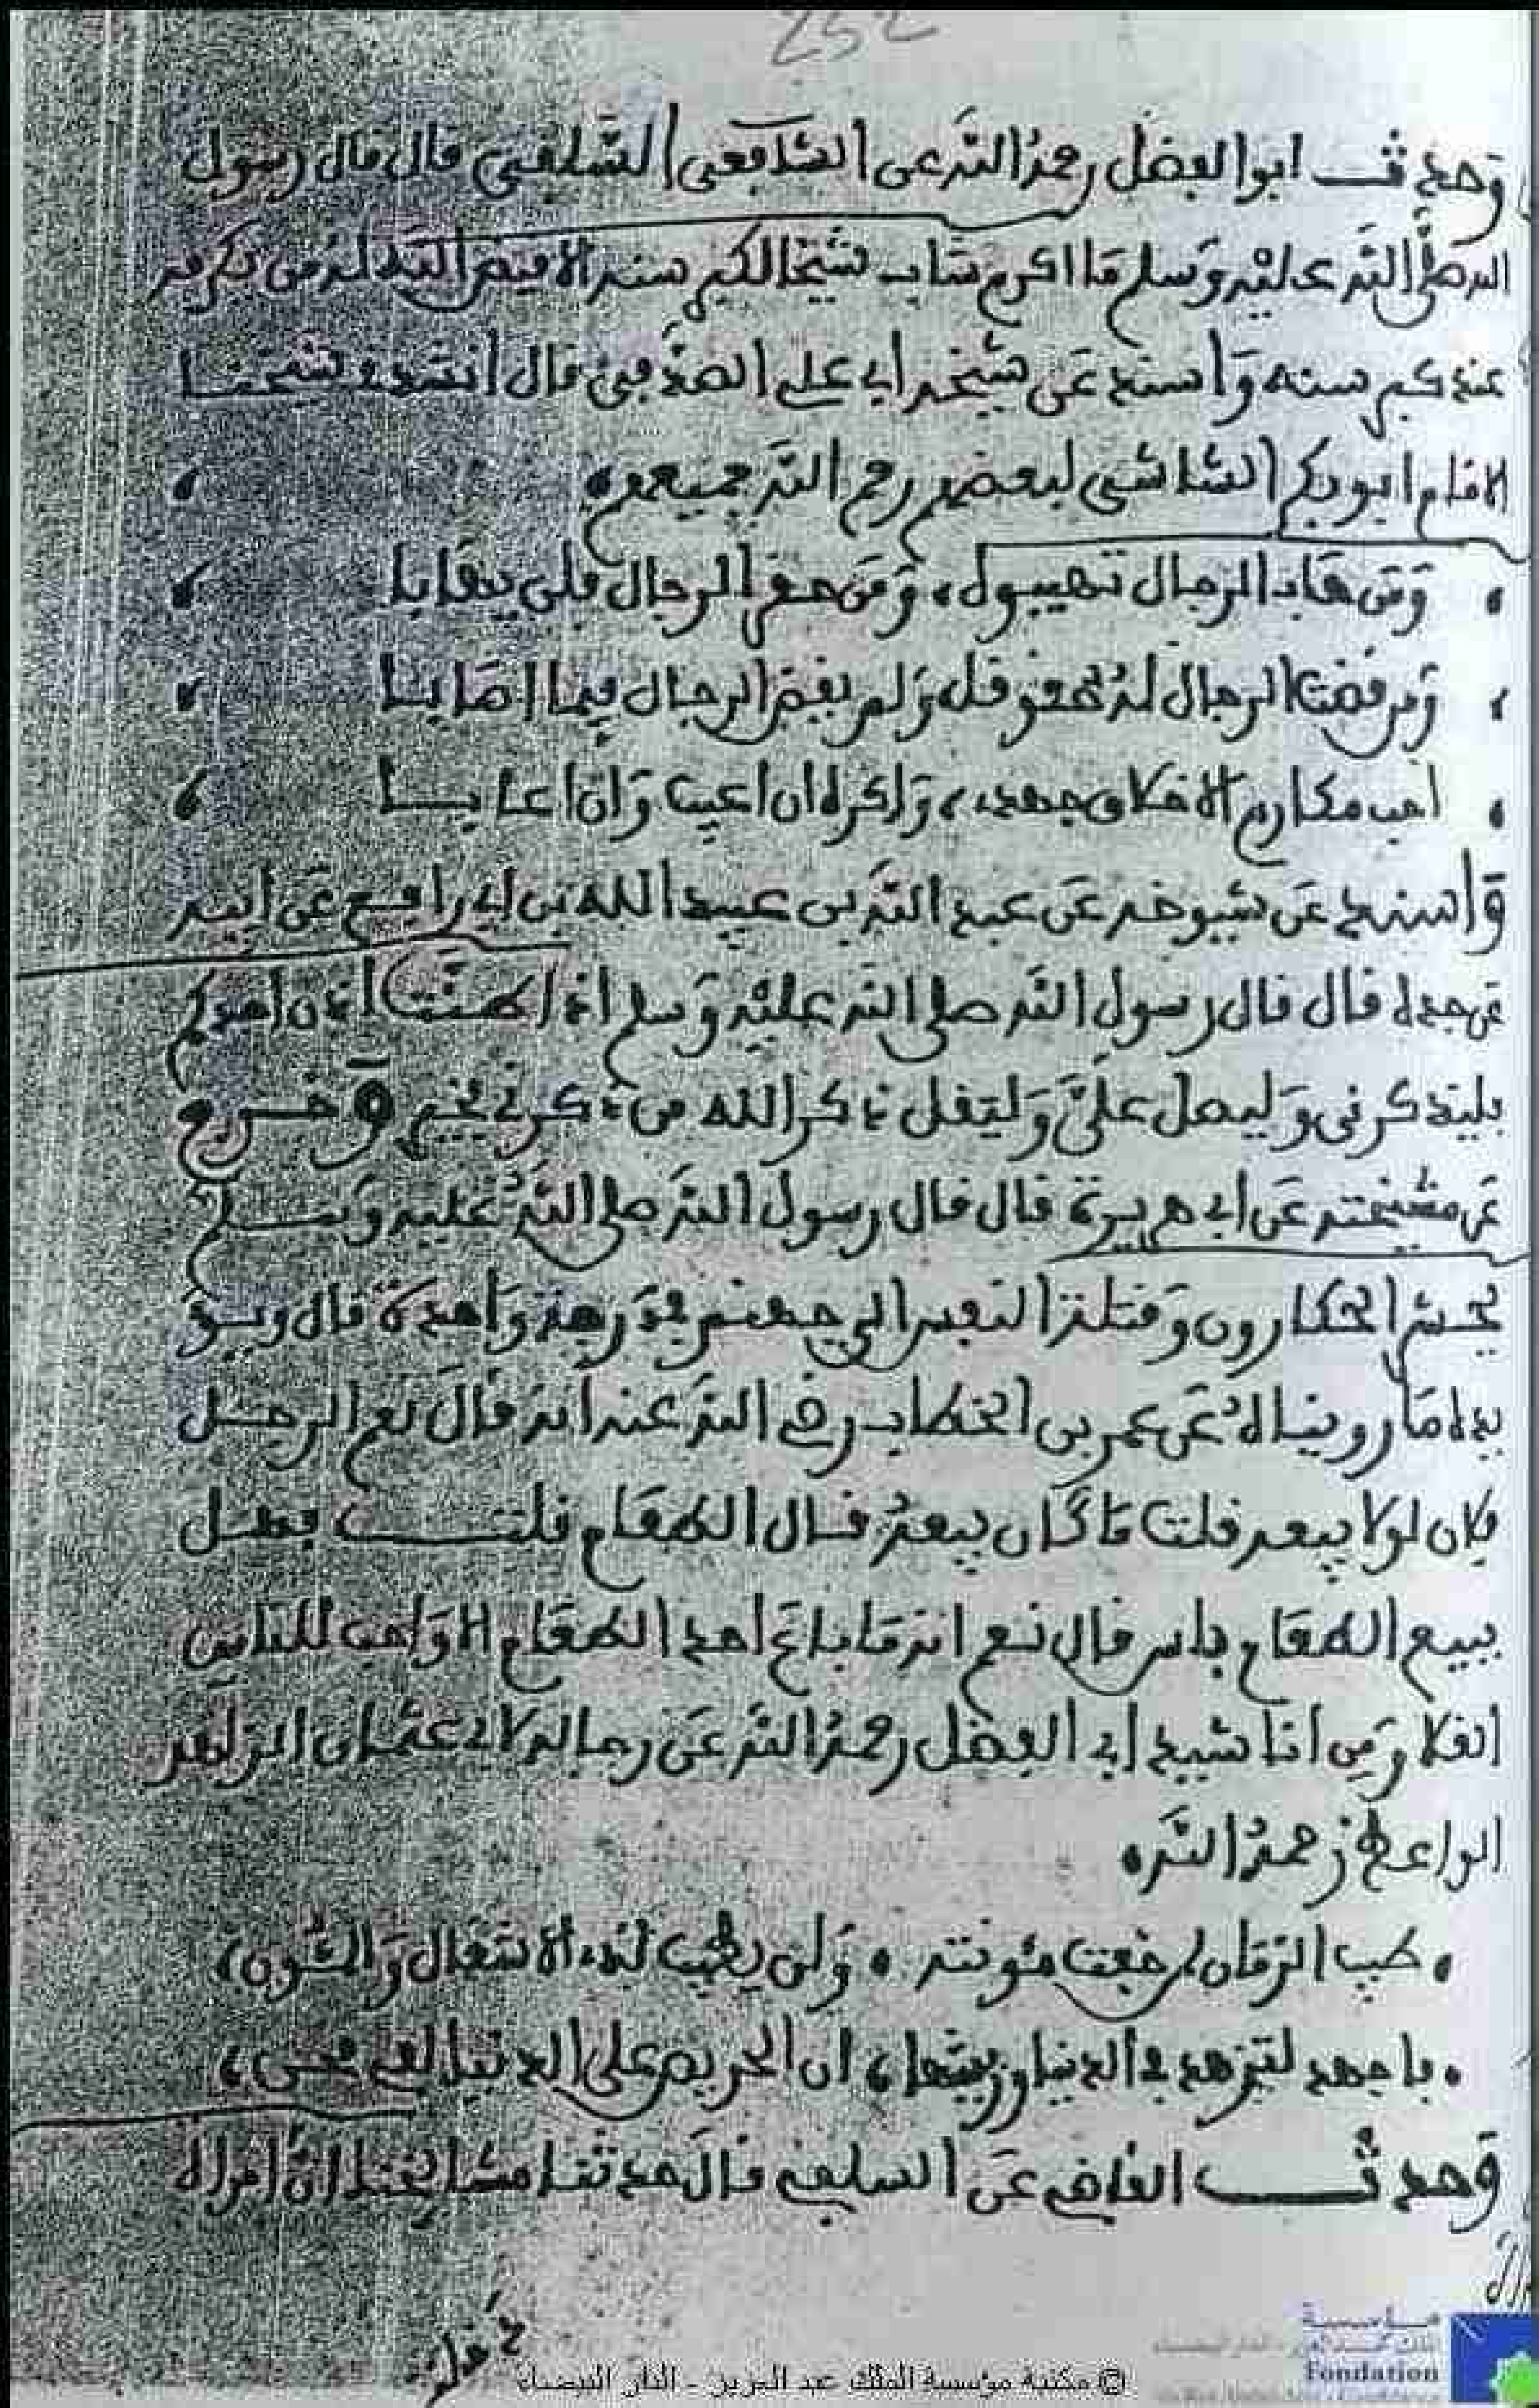 252
وحدث ابو الفضل رحمه الله عن الشافعي السلفي قال قال رسول
الله صلى الله عليه وسلم ما اكرم شاب شيخا لكبر سنه الا قيض الله له من يكرمه
عند كبر سنه واسند عن شيخه ابي علي الصدفي قال انشدنا شيخنا
الامام ابو بكر الشاشي لبعضهم رحم الله جميعهم
ومن هاب الرجال تهيبوه ومن حقر الرجال فلن يهابا
ومن قضت الرجال له حقوقا ولم يقض الرجال فما اصابا
احب مكارم الاخلاق جهدي واكره ان اعيب وان اعابا
واسند عن شيوخه عن عبد الله بن عبيد الله بن ابي رافع عن ابيه
عن جده قال قال رسول الله صلى الله عليه وسلم اذا طنت اذن احدكم
فليذكرني وليصل علي وليقل ذكر الله من ذكرني بخير وخرج
عن مشيخته عن ابي هريرة قال قال رسول الله صلى الله عليه وسلم
يحشر الحكارون وقتلة النفس الى جهنم في درجة واحدة قال
ما رويناه عن عمر بن الخطاب رضي الله عنه انه قال نعم الرجل
فلان لولا بيعه قلت ما كان يبيع قال الطعام قلت فهل
ببيع الطعام باس قال نعم انه ما باع احد الطعام الا واحب للناس
الغلا ومن اناشيد ابي الفضل رحمه الله عن رجاله لابي عثمان الزاهد
الواعظ رحمه الله
طيب الزمان لمن خفت مئونته ولن يطيب لذي الاشغال والمئون
فاجهد لتزهد في الدنيا وزينتها ان الحريص على الدنيا لفي محن
وحدث القاضي عن السلفي قال حدثنا مشايخنا ان امراة
© مكتبة مؤسسة الملك عبد العزيز - الدار البيضاء
مؤسسة
Fondation